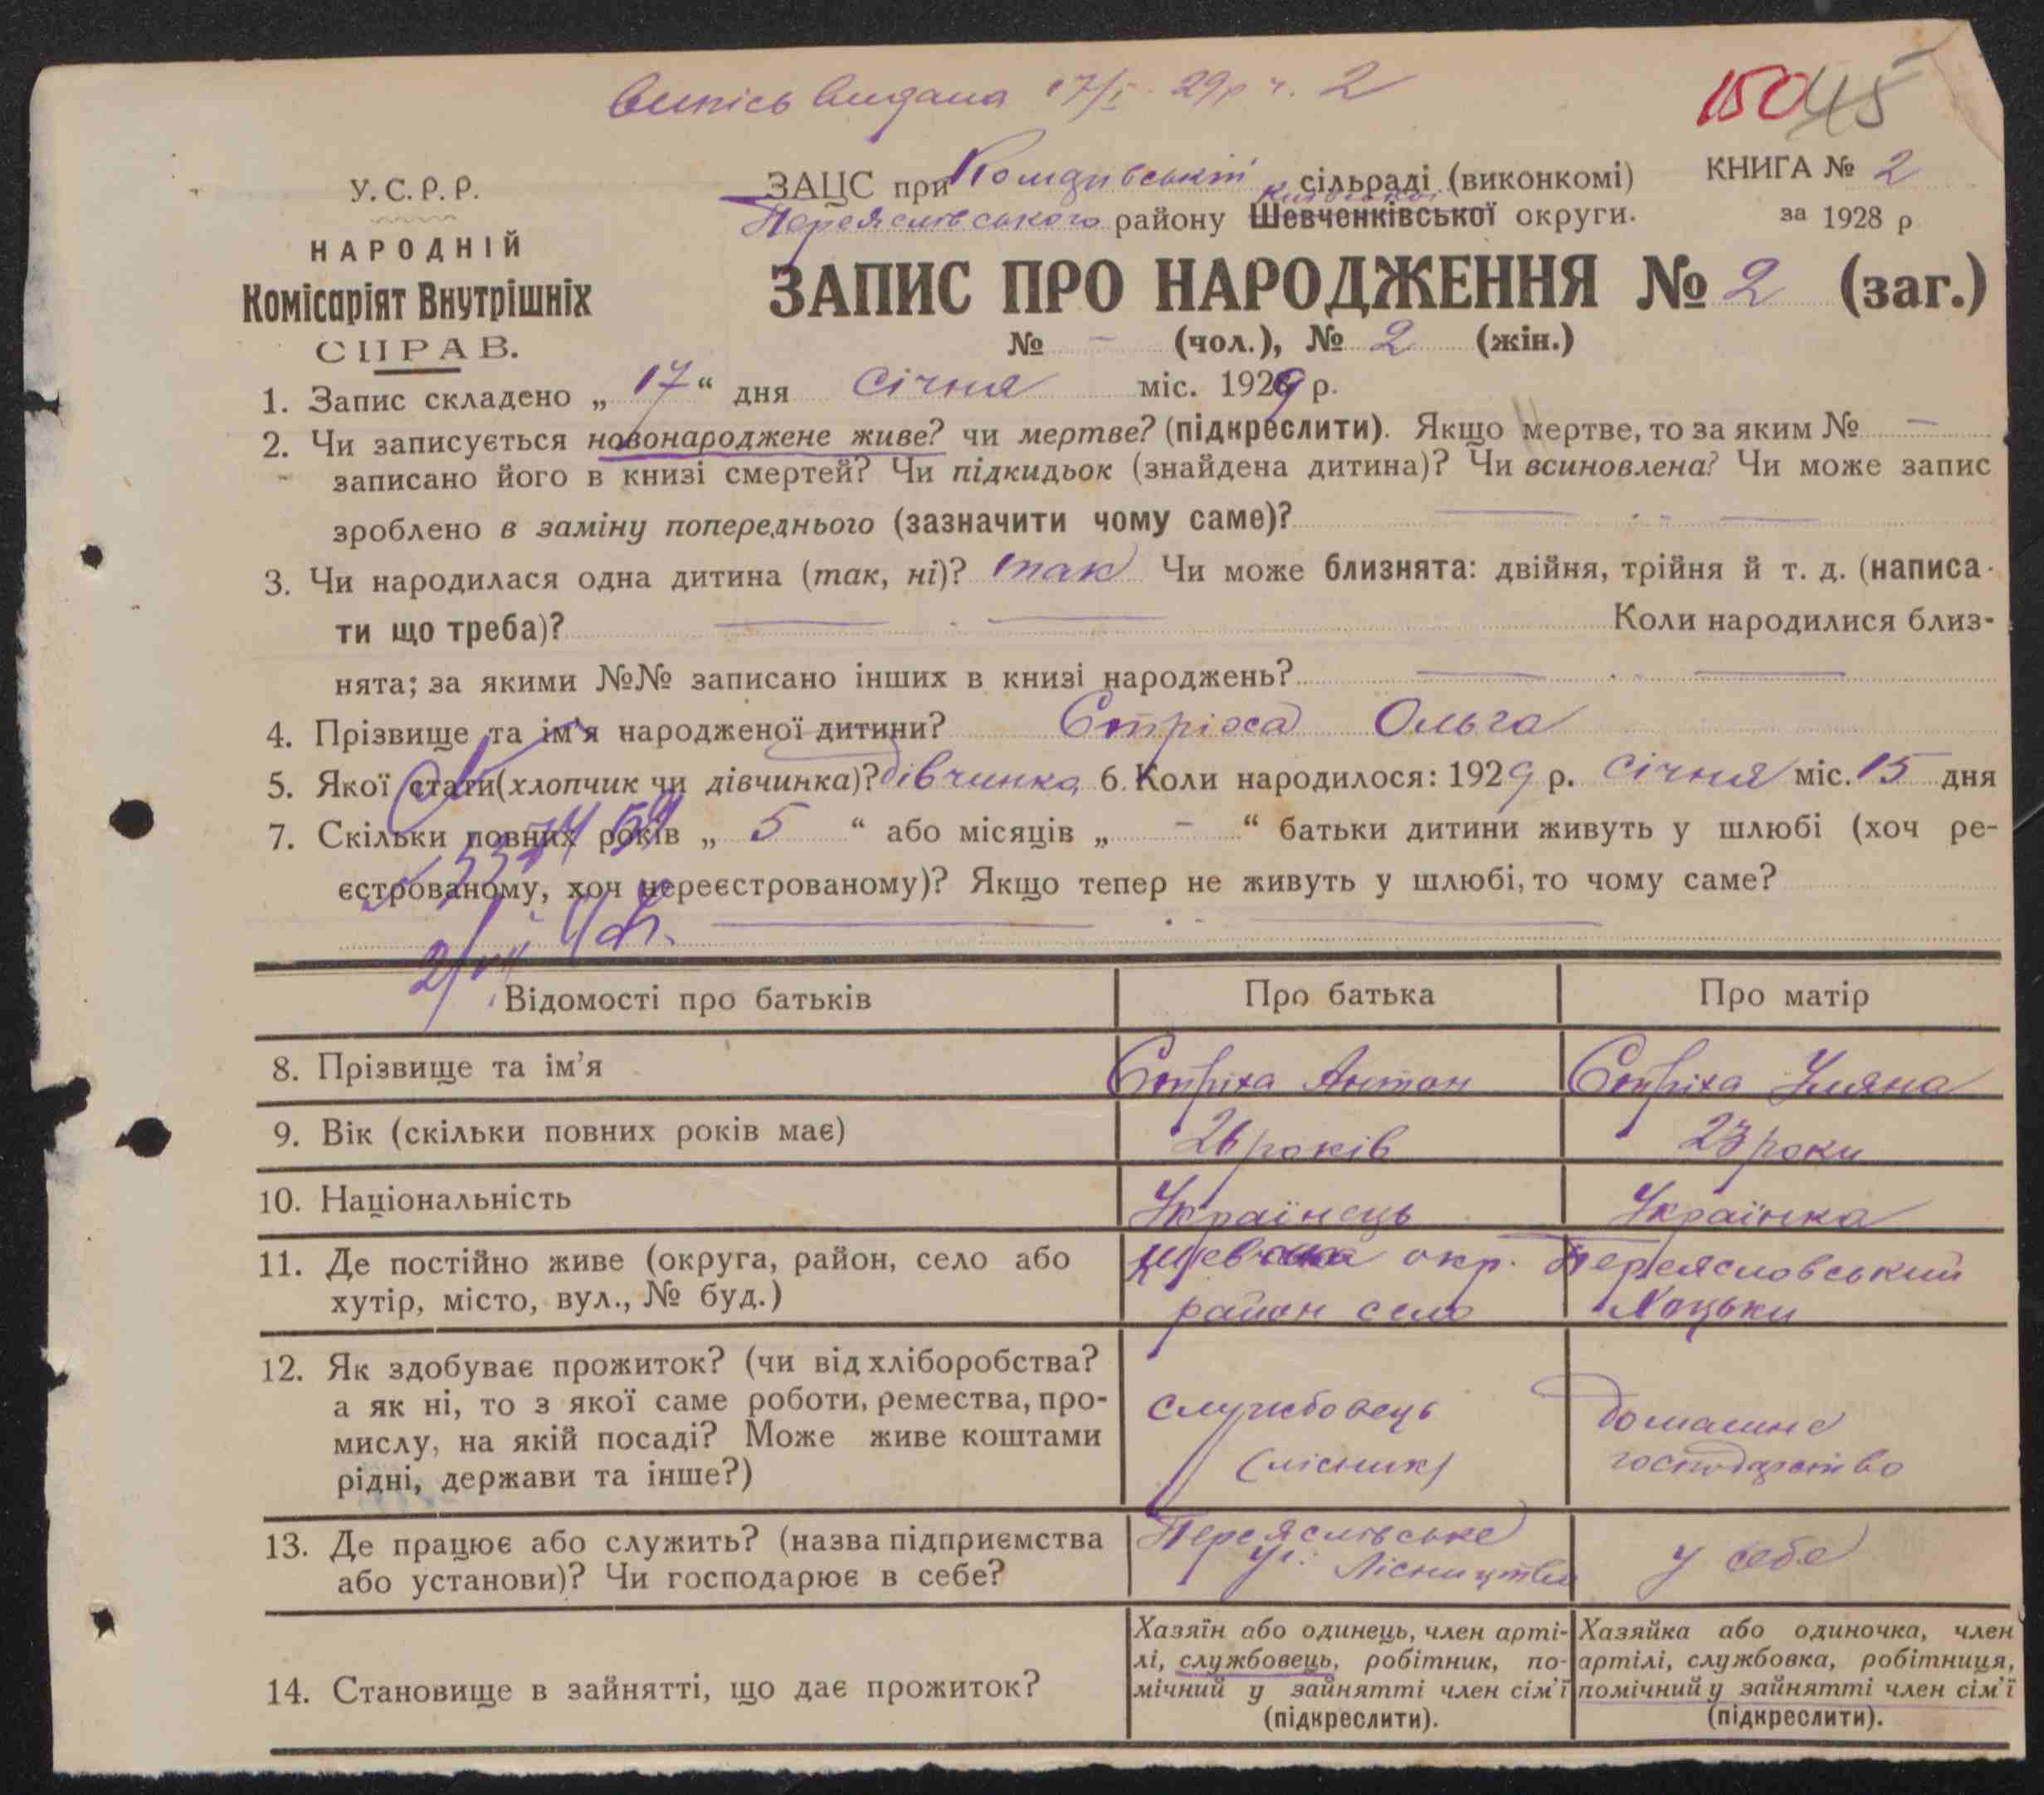 Випісь видана 17/I 29р ч. 2
150 45
У.С.Р.Р.
НАРОДНІЙ
Комісаріят Внутрішніх
СПРАВ.
ЗАЦС при сільраді (виконкомі)
КНИГА № 2
Київської
Переяслівського району Шевченківської округи.
за 1928 р
ЗАПИС ПРО НАРОДЖЕННЯ № 2 (заг.)
№ - (чол.), № 2 (жін.)
1. Запис складено „ 17 “ дня Січня міс. 1929 р.
2. Чи записується новонароджене живе? чи мертве? (підкреслити). Якщо мертве, то за яким № —
записано його в книзі смертей? Чи підкидьок (знайдена дитина)? Чи всиновлена? Чи може запис
зроблено в заміну попереднього (зазначити чому саме)?
3. Чи народилася одна дитина (так, ні)? так Чи може близнята: двійня, трійня й т. д. (написа-
ти що треба)? Коли народилися близ-
нята; за якими №№ записано інших в книзі народжень?
4. Прізвище та ім'я народженої дитини? Стріха Ольга
5. Якої стати (хлопчик чи дівчинка)? дівчинка 6. Коли народилося: 1929 р. Січня міс. 15 дня
7. Скільки повних років „ 5 “ або місяців „ - “ батьки дитини живуть у шлюбі (хоч ре-
єстрованому, хоч нереєстрованому)? Якщо тепер не живуть у шлюбі, то чому саме?
Відомості про батьків Про батька Про матір
8. Прізвище та ім'я Стріха Антон Стріха Уляна
9. Вік (скільки повних років має) 26 років 23 роки
10. Національність Українець Українка
11. Де постійно живе (округа, район, село або окр. Переясловський
хутір, місто, вул., № буд.) район село Хоцьки
12. Як здобуває прожиток? (чи від хліборобства?
а як ні, то з якої саме роботи, ремества, про- службовець домашнє
мислу, на якій посаді? Може живе коштами
рідні, держави та інше?) (лісник) господарство
13. Де працює або служить? (назва підприємства Переяслівське
або установи)? Чи господарює в себе? Лісництво у себе
Хазяїн або одинець, член арті- Хазяйка або одиночка, член
лі, службовець, робітник, по- артілі, службовка, робітниця,
14. Становище в зайнятті, що дає прожиток? мічний у зайнятті член сім'ї помічний у зайнятті член сім'ї
(підкреслити). (підкреслити).